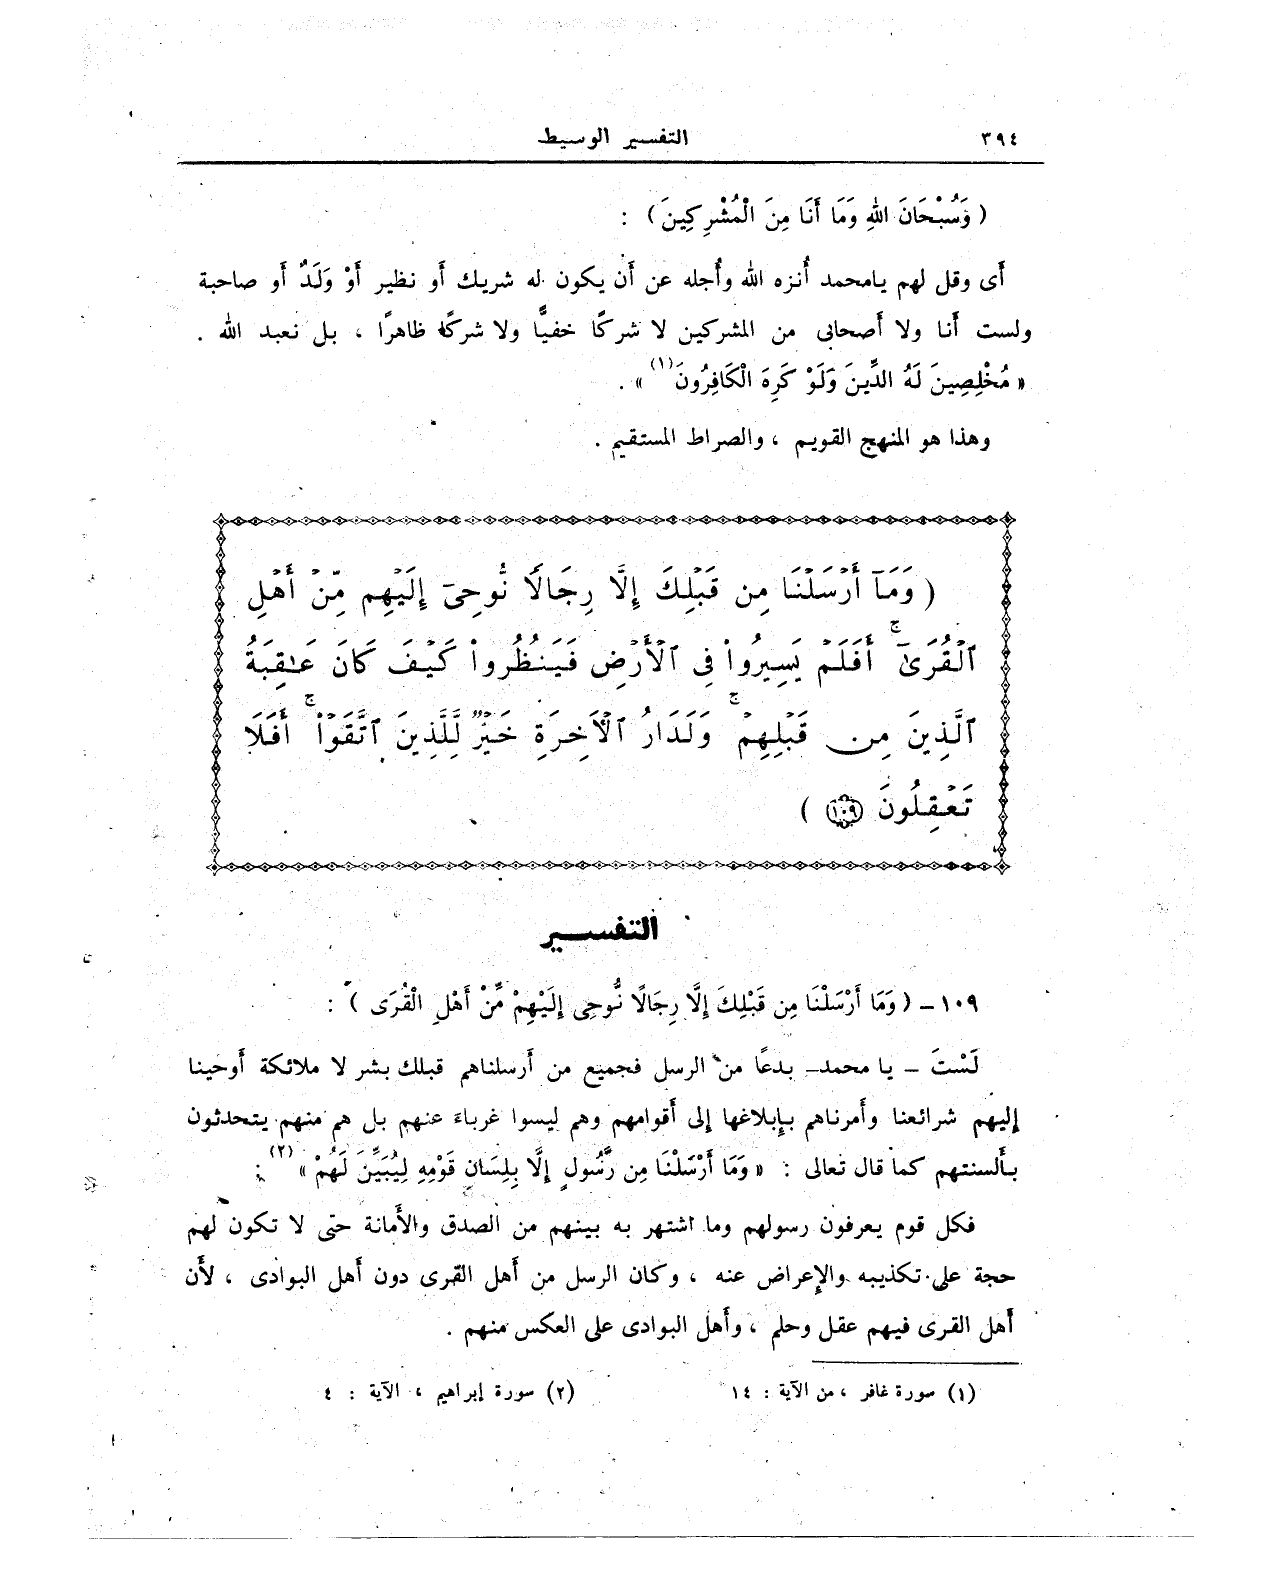 ٣٩٤
التفسير الوسيط
( وَسُبْحَانَ اللهِ وَمَا أَنَا مِنَ الْمُشْرِكِينَ ) :
أى وقل لهم يامحمد أُنزه الله وأُجله عن أن يكون له شريك أو نظير أوْ وَلَدٌ أو صاحبة
ولست أنا ولا أصحابى من المشركين لا شركًا خفيًّا ولا شركًا ظاهرًا ، بل نعبد الله .
« مُخْلِصِينَ لَهُ الدِّينَ وَلَوْ كَرِهَ الْكَافِرُونَ (١) » .
وهذا هو المنهج القويم ، والصراط المستقيم .
( وَمَآ أَرْسَلْنَا مِن قَبْلِكَ إِلَّا رِجَالًا نُّوحِىٓ إِلَيْهِم مِّنْ أَهْلِ
ٱلْقُرَىٰٓ ۗ أَفَلَمْ يَسِيرُوا۟ فِى ٱلْأَرْضِ فَيَنظُرُوا۟ كَيْفَ كَانَ عَـٰقِبَةُ
ٱلَّذِينَ مِن قَبْلِهِمْ ۗ وَلَدَارُ ٱلْآخِرَةِ خَيْرٌ لِّلَّذِينَ ٱتَّقَوْا۟ ۚ أَفَلَا
تَعْقِلُونَ ١٠٩ )
التفسير
١٠٩ - ( وَمَا أَرْسَلْنَا مِن قَبْلِكَ إِلَّا رِجَالًا نُّوحِى إِلَيْهِمْ مِّنْ أَهْلِ الْقُرَى ) :
لَسْتَ - يا محمد - بدعًا من الرسل فجميع من أرسلناهم قبلك بشر لا ملائكة أوحينا
إليهم شرائعنا وأمرناهم بإبلاغها إلى أقوامهم وهم ليسوا غرباءَ عنهم بل هم منهم يتحدثون
بألسنتهم كما قال تعالى : « وَمَا أَرْسَلْنَا مِن رَّسُولٍ إِلَّا بِلِسَانِ قَوْمِهِ لِيُبَيِّنَ لَهُمْ » (٢) :
فكل قوم يعرفون رسولهم وما اشتهر به بينهم من الصدق والأمانة حتى لا تكون لهم
حجة على تكذيبه والإعراض عنه ، وكان الرسل من أهل القرى دون أهل البوادى ، لأن
أهل القرى فيهم عقل وحلم ، وأهل البوادى على العكس منهم .
(١) سورة غافر ، من الآية : ١٤
(٢) سورة إبراهيم ، الآية : ٤